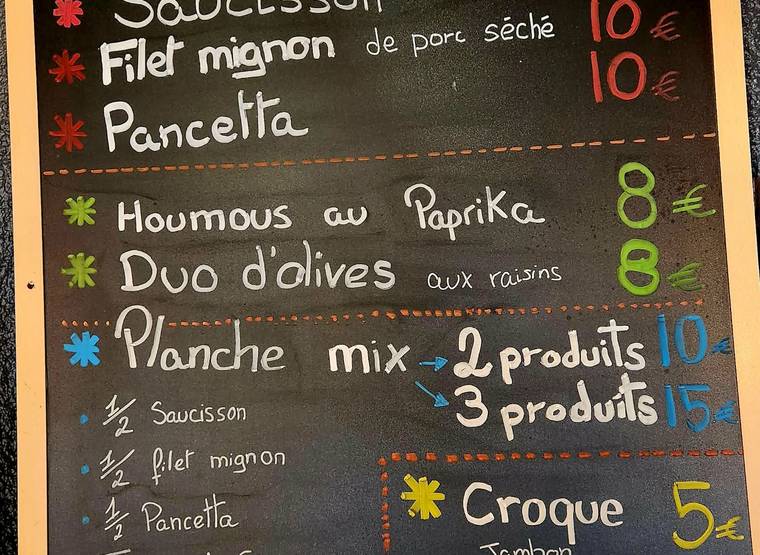 Saucisson
Filet mignon de porc séché 10€
Pancetta 10€
Houmous au Paprika 8€
Duo d'olives aux raisins 8€
Planche mix → 2 produits 10€
→ 3 produits 15€
1/2 Saucisson
1/2 filet mignon
1/2 Pancetta
Croque 5€
Jambon